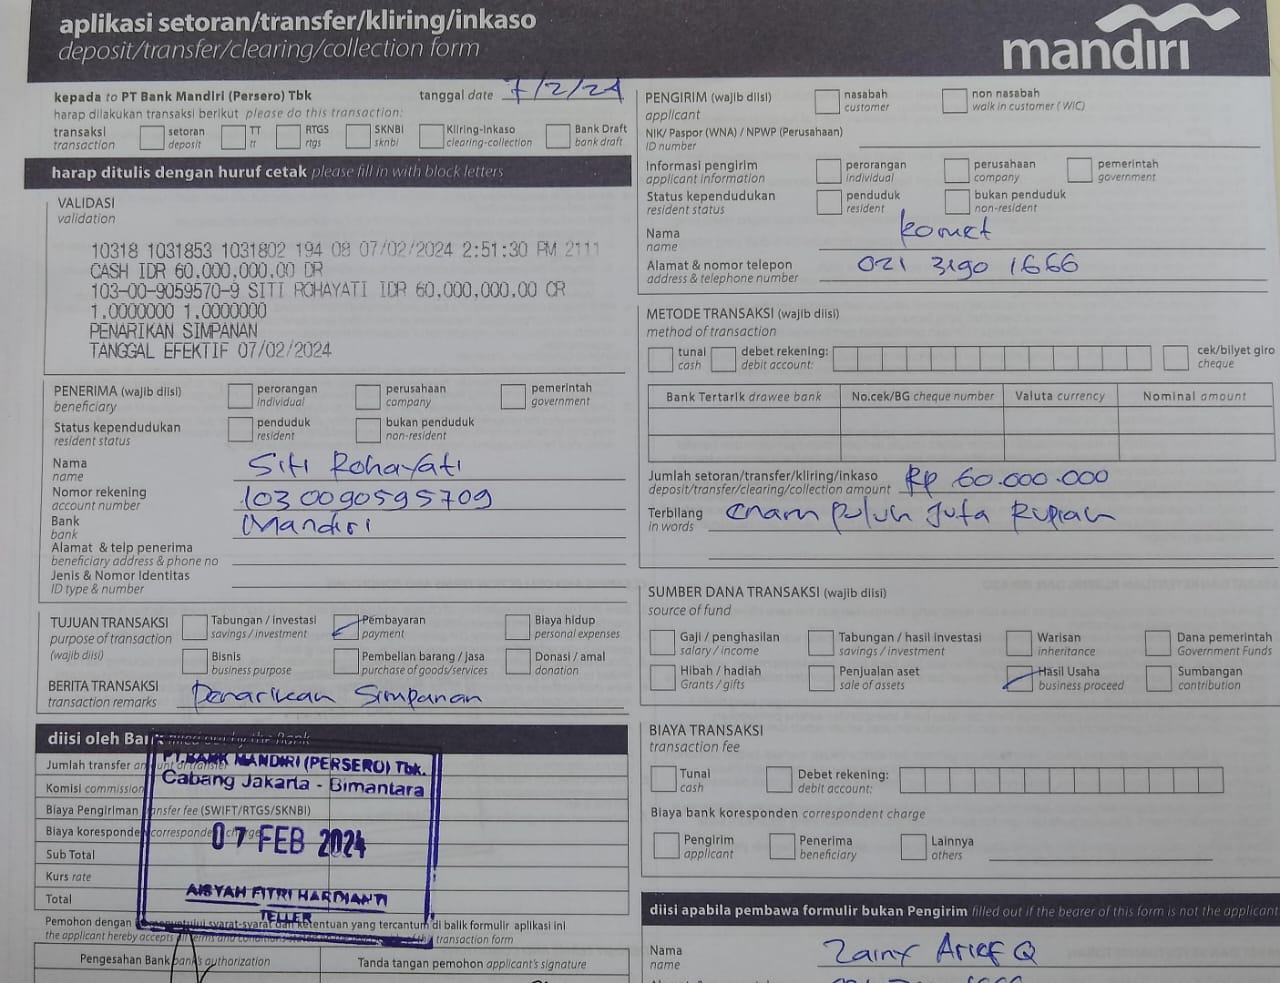 aplikasi setoran/transfer/kliring/inkaso
deposit/transfer/clearing/collection form
mandiri
kepada to PT Bank Mandiri (Persero) Tbk
tanggal date 7/2/24
harap dilakukan transaksi berikut please do this transaction:
transaksi transaction
setoran deposit
TT tt
RTGS rtgs
SKNBI sknbi
Kliring-Inkaso clearing-collection
Bank Draft bank draft
harap ditulis dengan huruf cetak please fill in with block letters
VALIDASI
validation
10318 1031853 1031802 194 08 07/02/2024 2:51:30 PM 2111
CASH IDR 60.000.000,00 DR
103-00-9059570-9 SITI ROHAYATI IDR 60,000,000.00 CR
1.0000000 1.0000000
PENARIKAN SIMPANAN
TANGGAL EFEKTIF 07/02/2024
PENERIMA (wajib diisi)
beneficiary
perorangan individual
perusahaan company
pemerintah government
Status kependudukan
resident status
penduduk resident
bukan penduduk non-resident
Nama name Siti Rohayati
Nomor rekening account number 1030090595709
Bank bank Mandiri
Alamat & telp penerima
beneficiary address & phone no
Jenis & Nomor Identitas
ID type & number
TUJUAN TRANSAKSI
purpose of transaction
(wajib diisi)
Tabungan / investasi savings / investment
Pembayaran payment
Biaya hidup personal expenses
Bisnis business purpose
Pembelian barang / jasa purchase of goods/services
Donasi / amal donation
BERITA TRANSAKSI
transaction remarks Penarikan Simpanan
diisi oleh Bank filled out by the Bank
Jumlah transfer amount of transfer
Komisi commission
Biaya Pengiriman transfer fee (SWIFT/RTGS/SKNBI)
Biaya koresponden correspondent charge
Sub Total
Kurs rate
Total
PT.BANK MANDIRI (PERSERO) Tbk.
Cabang Jakarta - Bimantara
07 FEB 2024
AISYAH FITRI HARDIANTI
TELLER
Pemohon dengan ini menyetujui syarat-syarat dan ketentuan yang tercantum di balik formulir aplikasi ini
the applicant hereby accepts all terms and conditions of this transaction form
Pengesahan Bank bank's authorization
Tanda tangan pemohon applicant's signature
PENGIRIM (wajib diisi)
applicant
nasabah customer
non nasabah walk in customer (WIC)
NIK/ Paspor (WNA) / NPWP (Perusahaan)
ID number
Informasi pengirim
applicant information
perorangan individual
perusahaan company
pemerintah government
Status kependudukan
resident status
penduduk resident
bukan penduduk non-resident
Nama name
Alamat & nomor telepon 021 3190 1666
address & telephone number
METODE TRANSAKSI (wajib diisi)
method of transaction
tunai cash
debet rekening: debit account:
cek/bilyet giro cheque
Bank Tertarik drawee bank
No.cek/BG cheque number
Valuta currency
Nominal amount
Jumlah setoran/transfer/kliring/inkaso
deposit/transfer/clearing/collection amount Rp 60.000.000
Terbilang in words enam puluh Juta Rupiah
SUMBER DANA TRANSAKSI (wajib diisi)
source of fund
Gaji / penghasilan salary / income
Tabungan / hasil investasi savings / investment
Warisan inheritance
Dana pemerintah Government Funds
Hibah / hadiah Grants / gifts
Penjualan aset sale of assets
Hasil Usaha business proceed
Sumbangan contribution
BIAYA TRANSAKSI
transaction fee
Tunai cash
Debet rekening: debit account:
Biaya bank koresponden correspondent charge
Pengirim applicant
Penerima beneficiary
Lainnya others
diisi apabila pembawa formulir bukan Pengirim filled out if the bearer of this form is not the applicant
Nama name Arief Q